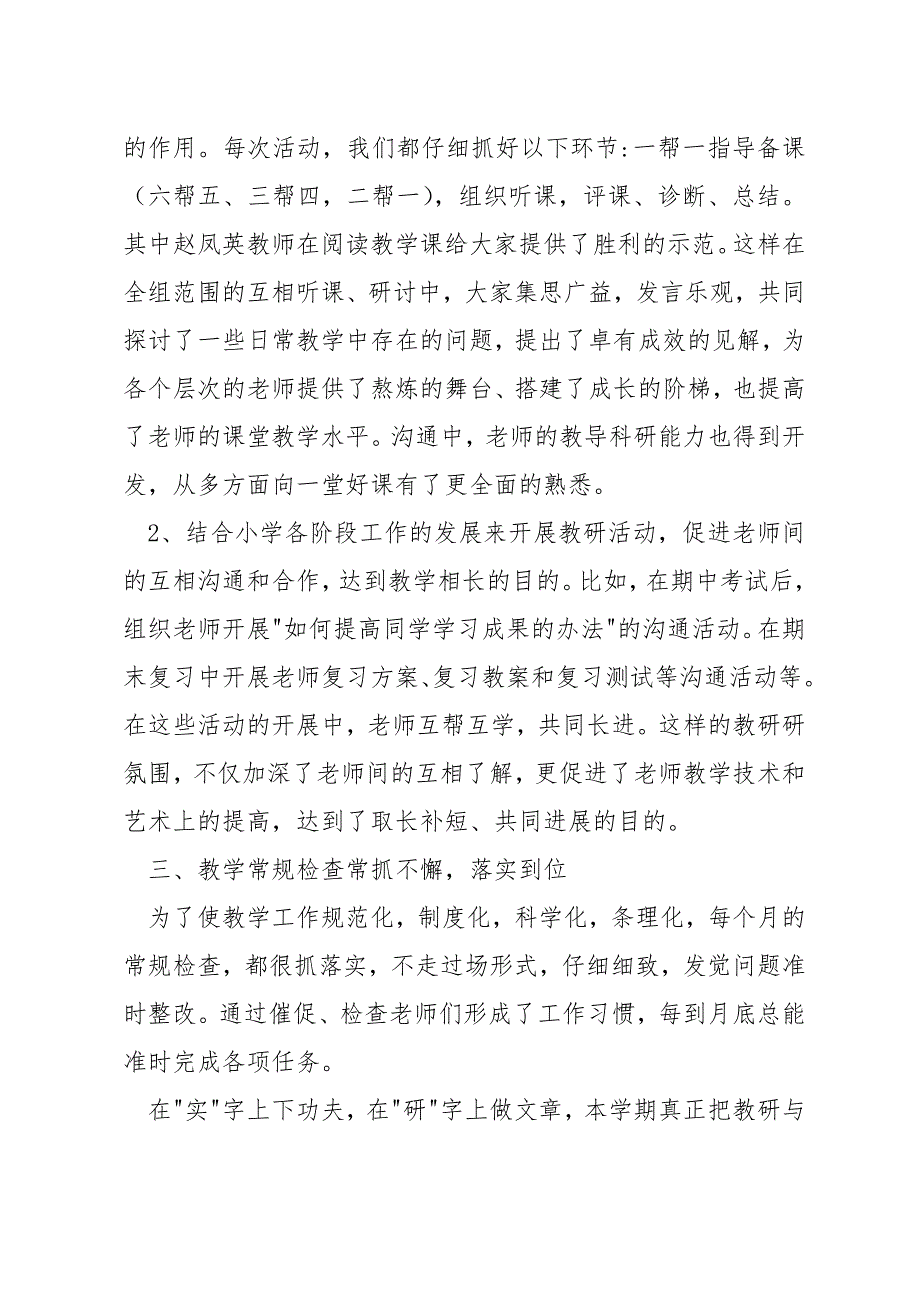 的作用。每次活动，我们都仔细抓好以下环节:一帮一指导备课
（六帮五、三帮四，二帮一），组织听课，评课、诊断、总结。
其中赵凤英教师在阅读教学课给大家提供了胜利的示范。这样在
全组范围的互相听课、研讨中，大家集思广益，发言乐观，共同
探讨了一些日常教学中存在的问题，提出了卓有成效的见解，为
各个层次的老师提供了熬炼的舞台、搭建了成长的阶梯，也提高
了老师的课堂教学水平。沟通中，老师的教导科研能力也得到开
发，从多方面向一堂好课有了更全面的熟悉。
2、结合小学各阶段工作的发展来开展教研活动，促进老师间
的互相沟通和合作，达到教学相长的目的。比如，在期中考试后，
组织老师开展"如何提高同学学习成果的办法"的沟通活动。在期
末复习中开展老师复习方案、复习教案和复习测试等沟通活动等。
在这些活动的开展中，老师互帮互学，共同长进。这样的教研研
氛围，不仅加深了老师间的互相了解，更促进了老师教学技术和
艺术上的提高，达到了取长补短、共同进展的目的。
三、教学常规检查常抓不懈，落实到位
为了使教学工作规范化，制度化，科学化，条理化，每个月的
常规检查，都很抓落实，不走过场形式，仔细细致，发觉问题准
时整改。通过催促、检查老师们形成了工作习惯，每到月底总能
准时完成各项任务。
在"实"字上下功夫，在"研"字上做文章，本学期真正把教研与